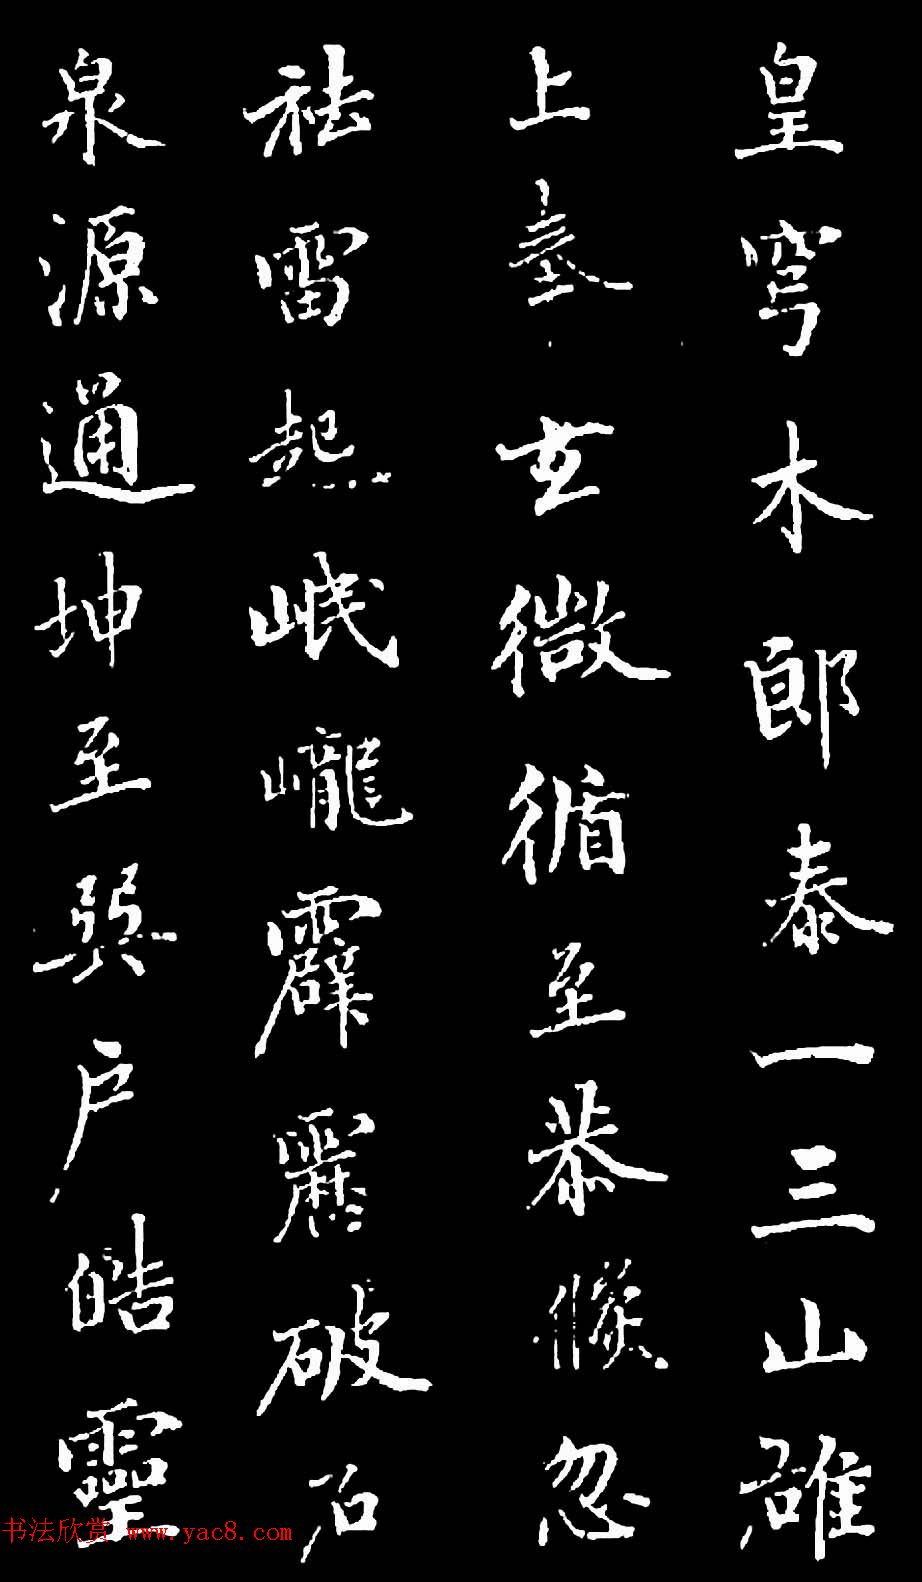 皇穹木郎泰一三山雄
上玄微循至恭倏忽
祛雷起岷巄霹靂破石
泉源通坤至巽户皓靈
书法欣赏 www.yac8.com